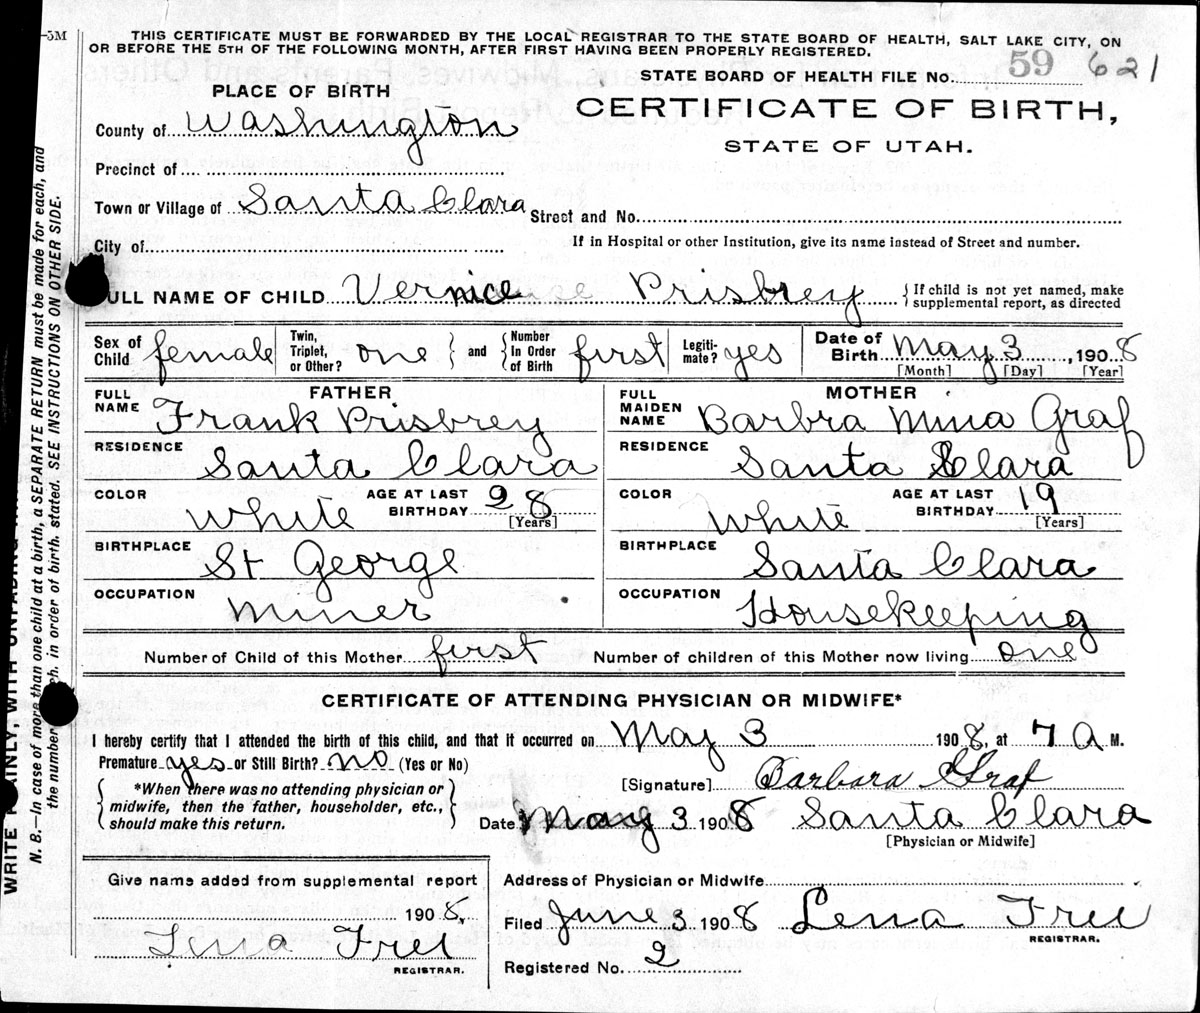 5M
THIS CERTIFICATE MUST BE FORWARDED BY THE LOCAL REGISTRAR TO THE STATE BOARD OF HEALTH, SALT LAKE CITY, ON
OR BEFORE THE 5TH OF THE FOLLOWING MONTH, AFTER FIRST HAVING BEEN PROPERLY REGISTERED.
STATE BOARD OF HEALTH FILE NO. 59 621
PLACE OF BIRTH
CERTIFICATE OF BIRTH,
STATE OF UTAH.
County of Washington
Precinct of
Town or Village of Santa Clara Street and No.
City of If in Hospital or other Institution, give its name instead of Street and number.
FULL NAME OF CHILD Vernice Prisbrey { If child is not yet named, make
supplemental report, as directed
Sex of Child female Twin, Triplet, or Other? one } and { Number In Order of Birth first Legiti-mate? yes Date of Birth May 3, 1908
[Month] [Day] [Year]
FATHER MOTHER
FULL NAME Frank Prisbrey FULL MAIDEN NAME Barbra Mina Graf
RESIDENCE Santa Clara RESIDENCE Santa Clara
COLOR White AGE AT LAST BIRTHDAY 28 [Years] COLOR White AGE AT LAST BIRTHDAY 19 [Years]
BIRTHPLACE St George BIRTHPLACE Santa Clara
OCCUPATION Miner OCCUPATION Housekeeping
Number of Child of this Mother first Number of children of this Mother now living one
CERTIFICATE OF ATTENDING PHYSICIAN OR MIDWIFE*
I hereby certify that I attended the birth of this child, and that it occurred on May 3 1908, at 7 A M.
Premature yes or Still Birth? no (Yes or No)
[Signature] Barbara Graf
{ *When there was no attending physician or
midwife, then the father, householder, etc.,
should make this return. }
Date May 3 1908 Santa Clara
[Physician or Midwife]
Give name added from supplemental report
1908,
Lena Frei
REGISTRAR.
Address of Physician or Midwife
Filed June 3 1908 Lena Frei
REGISTRAR.
Registered No. 2
N. B.—In case of more than one child at a birth, a SEPARATE RETURN must be made for each, and
the number of each, in order of birth, stated. SEE INSTRUCTIONS ON OTHER SIDE.
WRITE PLAINLY, WITH UNFADING